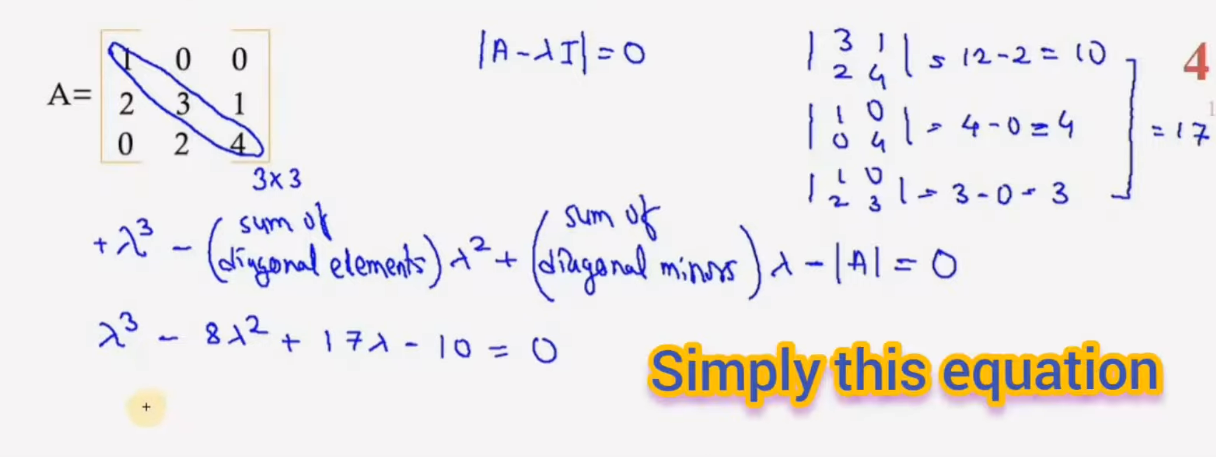 A= [1 0 0
2 3 1
0 2 4]
3×3
|A-λI|=0
|3 1
2 4| = 12-2 = 10
|1 0
0 4| = 4-0=4
|1 0
2 3| = 3-0=3
] = 17
4
+λ³ - (sum of diagonal elements) λ² + (sum of diagonal minors) λ - |A| = 0
λ³ - 8λ² + 17λ - 10 = 0
Simply this equation